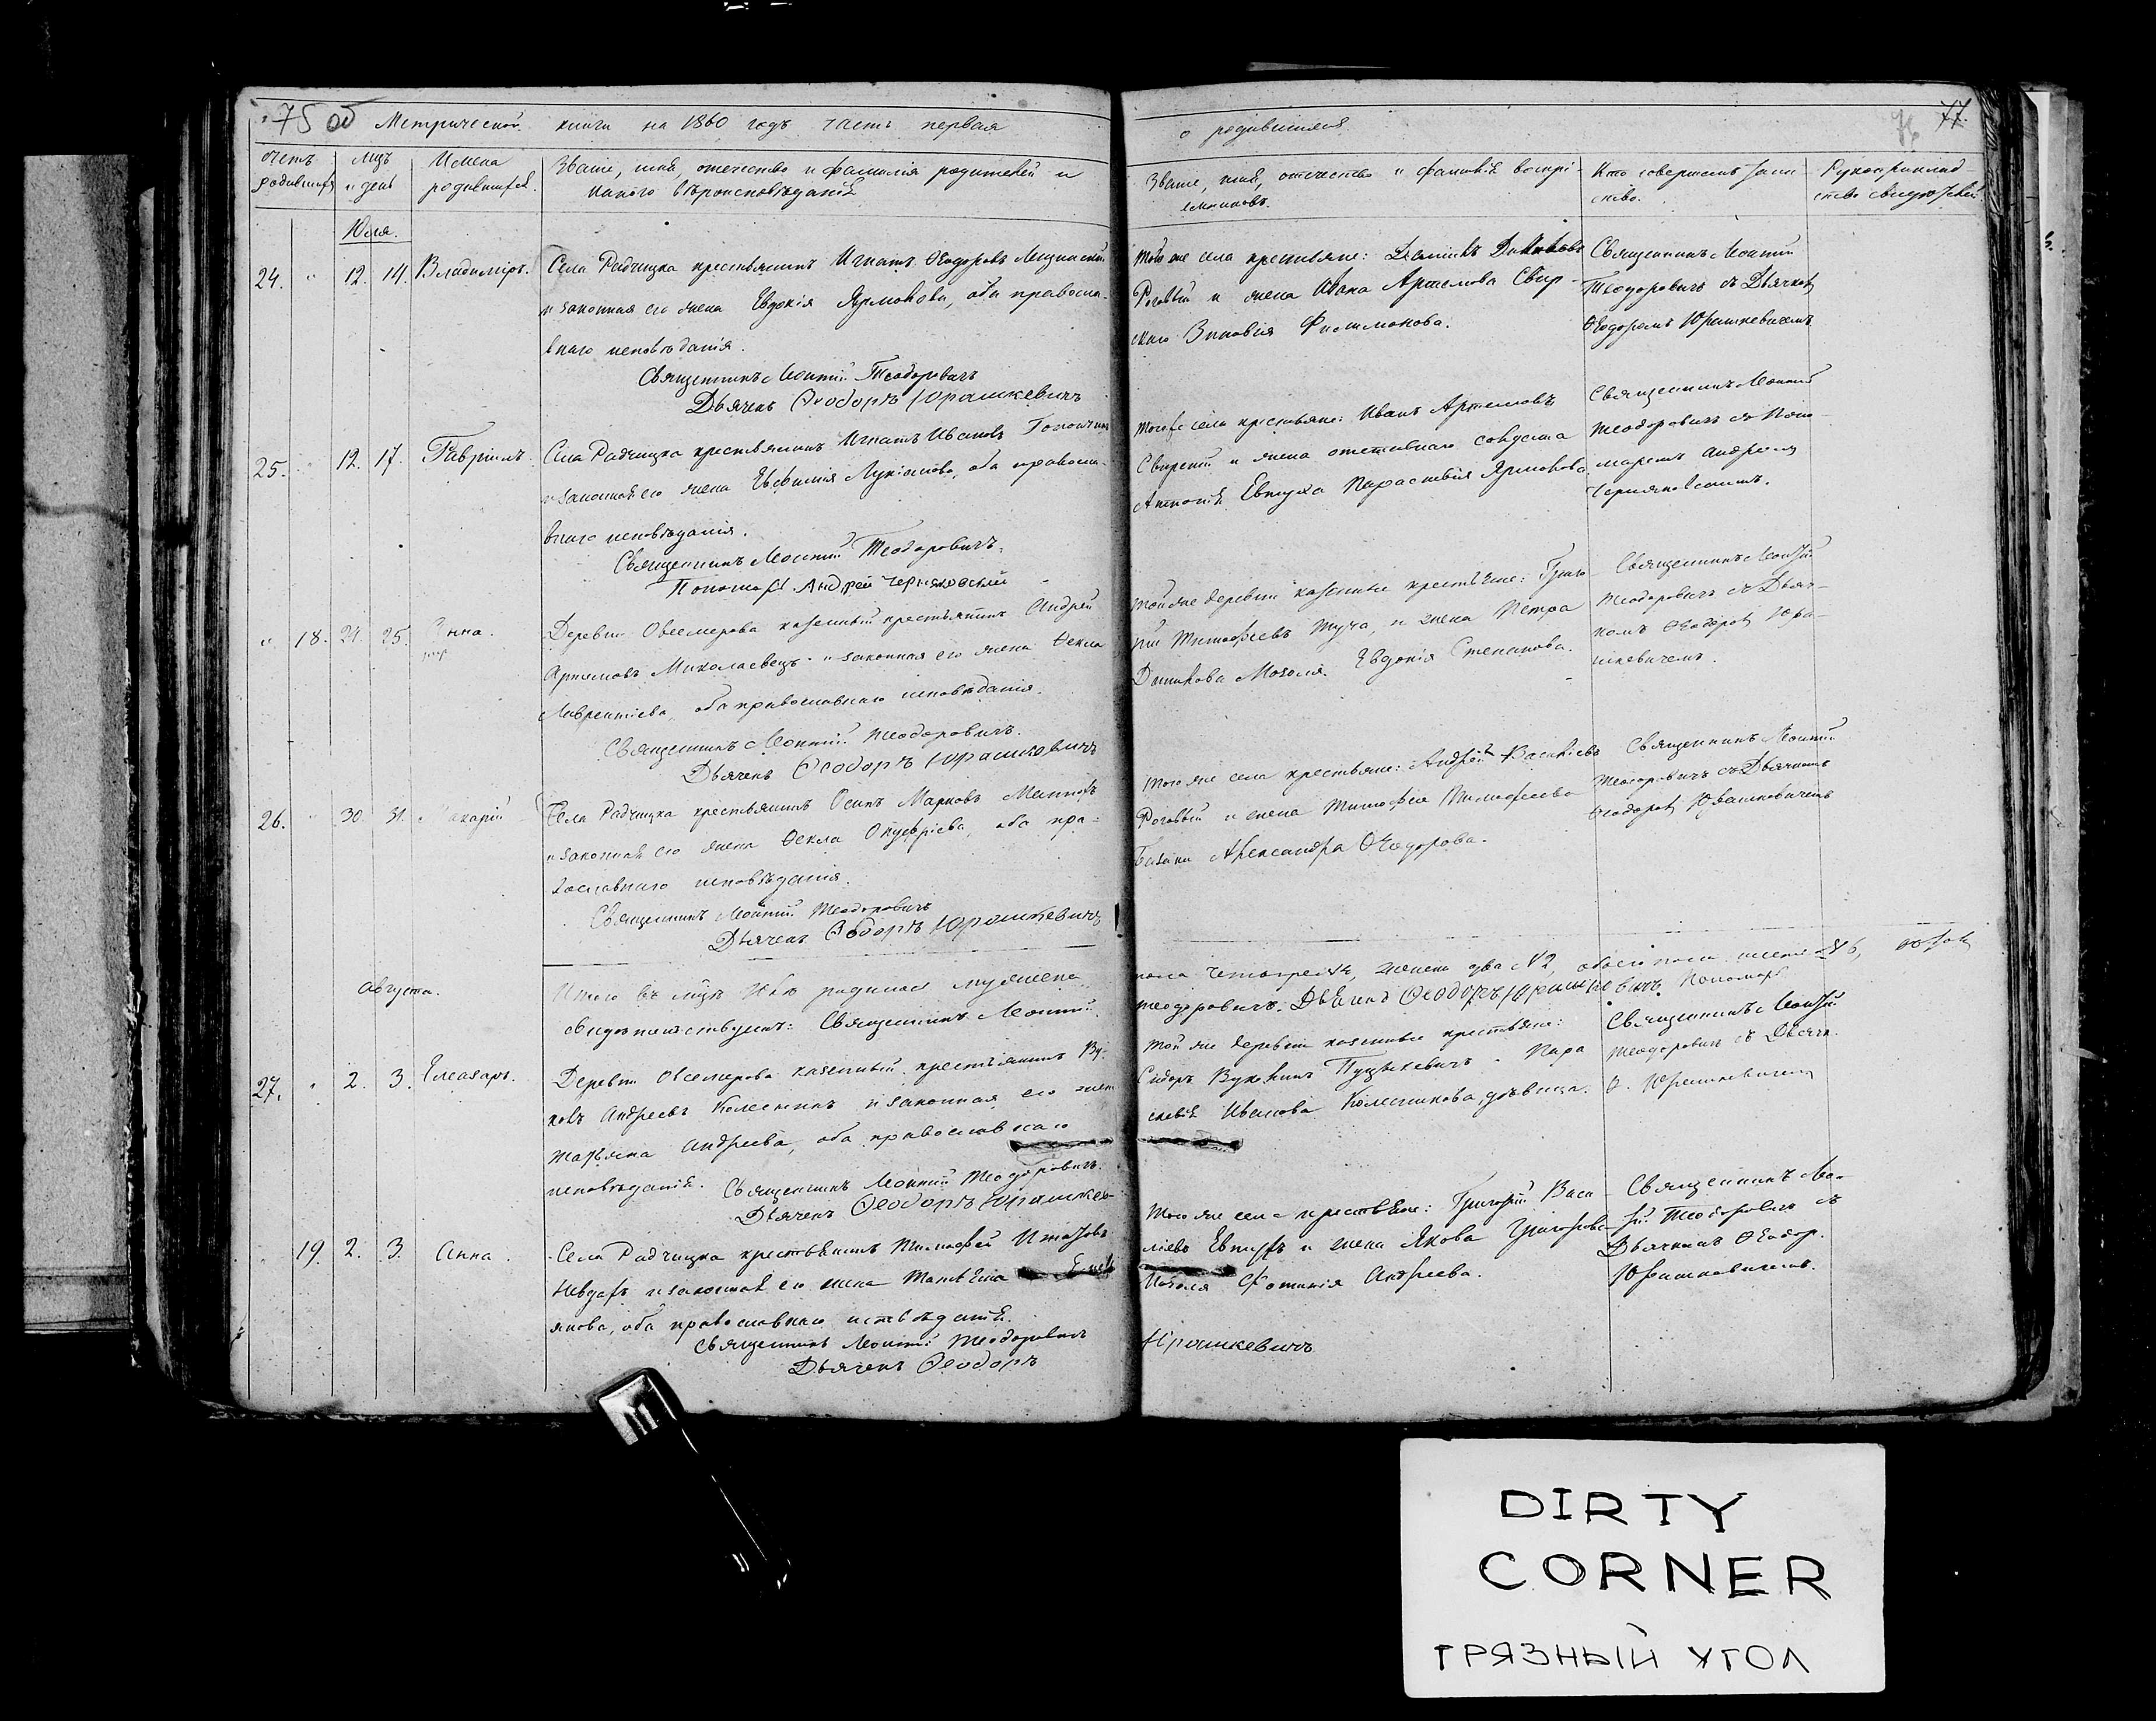 75 об Метрической книги на 1860 годъ часть первая
о родившихся
77.
Счетъ родившихся
мцъ и день
Имена родившихся.
Званіе, имя, отечество и фамилія родителей и
какого вѣроисповѣданія
Званіе, имя, отечество и фамилія воспрі-
емниковъ.
Кто совершалъ таин-
ство.
Рукоприклад-
ство свидѣтелей
Юля.
24. " 12. 14. Владиміръ.
Села Радчицка крестьянинъ Игнатъ Ѳеодоровъ
и законная его жена Евдокія Ярмокова, оба правосла-
внаго исповѣданія.
Священникъ Леонтій Теодоровичъ
Дьячекъ Ѳеодоръ Юрашкевичъ
Того же села крестьяне:
Роговый и жена Ивана Артемова Свир-
скаго Зиновія Филимонова.
Священникъ Леонтій
Теодоровичъ съ Дьячкомъ
Ѳеодоромъ Юрашкевичемъ
25. " 12. 17. Гавріилъ.
Села Радчицка крестьянинъ Игнатъ Ивановъ
и законная его жена Евфимія Лукіанова, оба правосла-
внаго исповѣданія.
Священникъ Леонтій Теодоровичъ.
Пономарь Андрей Черняковскій
Того же села крестьяне: Иванъ Артемовъ
Свирскій и жена отставнаго солдата
Антонія Евтуха Параскевія Ярмокова
Священникъ Леонтій
Теодоровичъ съ Поно-
маремъ Андреемъ
Черняковскимъ.
" 18. 24. 25. Анна.
Деревни Овсемерова казенный крестьянинъ Андрей
Артемовъ Миколаевецъ и законная его жена Ѳекла
Лаврентіева, оба православнаго исповѣданія.
Священникъ Леонтій Теодоровичъ.
Дьячекъ Ѳеодоръ Юрашкевичъ
Той же деревни казенные крестьяне: Григо-
рій Тимофеевъ Туча, и жена Петра
Мозоля Евдокія Степанова.
Священникъ Леонтій
Теодоровичъ съ Дьяч-
комъ Ѳеодоромъ Юра-
шкевичемъ.
26. " 30. 31. Макарій
Села Радчицка крестьянинъ Осипъ Марковъ
и законная его жена Ѳекла Онуфріева, оба пра-
вославнаго исповѣданія.
Священникъ Леонтій Теодоровичъ
Дьячекъ Ѳеодоръ Юрашкевичъ
Того же села крестьяне: Андрей Васильевъ
Роговый и жена Тимофея Тимофеева
Александра Ѳеодорова.
Священникъ Леонтій
Теодоровичъ съ Дьячкомъ
Ѳеодоромъ Юрашкевичемъ
Итого въ мцѣ Юлѣ родилось мужеска
пола четыре №4, женска два №2, обоего пола шесть №6,
свидѣтельствуемъ: Священникъ Леонтій
Теодоровичъ. Дьячекъ Ѳеодоръ Юрашкевичъ. Пономарь
Августа.
27. " 2. 3. Елеазаръ.
Деревни Овсемерова казенный крестьянинъ Ву-
колъ Андреевъ Колесникъ и законная его жена
Татьяна Андреева, оба православнаго
исповѣданія. Священникъ Леонтій Теодоровичъ.
Дьячекъ Ѳеодоръ Юрашкев
Той же деревни казенные крестьяне:
Сидоръ и Пара-
скевія Иванова Колесникова, дѣвица.
Священникъ Леонтій
Теодоровичъ съ Дьячк.
Ѳ. Юрашкевичемъ
" 19. 2. 3. Анна.
Села Радчицка крестьянинъ Тимофей Игнатовъ
и законная его жена Татьяна
янова, оба православнаго исповѣданія.
Священникъ Леонтій Теодоровичъ
Дьячекъ Ѳеодоръ
Юрашкевичъ
Того же села крестьяне: Григорій Васи-
ліевъ Евтухъ и жена Якова Григорова
Мозоля Фотинія Андреева.
Священникъ Лео-
тій Теодоровичъ съ
Дьячкомъ Ѳеодор.
Юрашкевичемъ.
DIRTY
CORNER
ГРЯЗНЫЙ УГОЛ